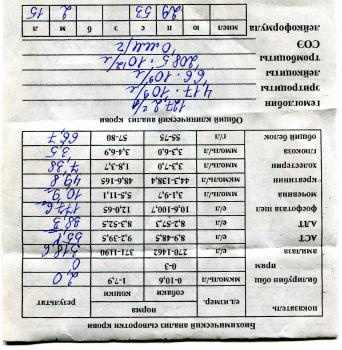 Биохимический анализ сыворотки крови
показатель ед.измер. норма результат
собаки кошки
билирубин общ мкмоль/л 0-10,6 1-7,9 2,0
прям 0-3 0
амилаза е/л 270-1462 371-1190 318,6
АСТ е/л 8,9-48,5 9,2-39,5
АЛТ е/л 8,2-57,3 8,3-52,5 38,5
фосфотаза щел е/л 10,6-100,7 12,0-65 172,6
мочевина ммоль/л 3,1-9,7 5,5-11,1 10,9
креатинин мкмоль/л 44,3-138,4 48,6-165 49,8
холестерин ммоль/л 3,3-7,0 1,8-3,7 7,38
глюкоза ммоль/л 3,3-6,0 3,4-6,9 3,5
общий белок г/л 55-75 57-80 66,7
Общий клинический анализ крови
гемоглобин 127,2 г/л
эритроциты 4,17·10⁹/л
лейкоциты 6,6·10⁹/л
тромбоциты 208,5·10¹²/л
СОЭ 0 мм/ч
лейкоформула мисл ю п с э б м л
29 53 2 15